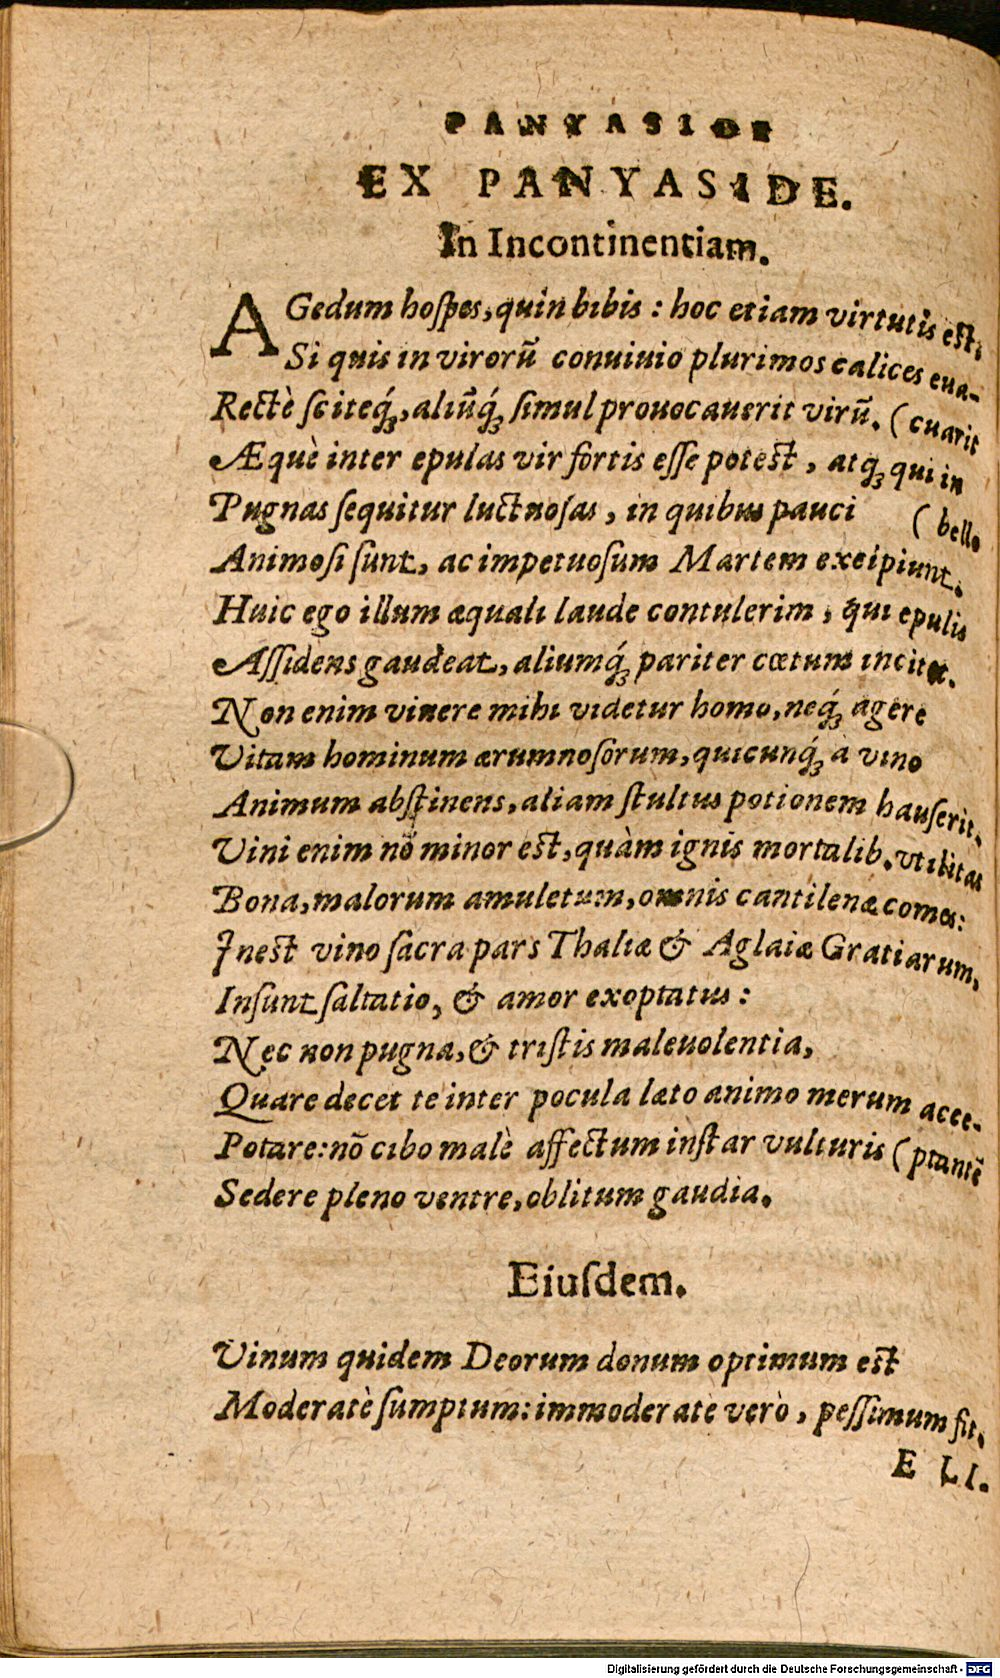 PANYASIDE
EX PANYASIDE.
In Incontinentiam.
AGedum hoſpes, quin bibis : hoc etiam virtutis eſt:
Si quis in virorũ conuiuio plurimos calices eua-
Rectè ſciteq́ꝫ, aliũq́ꝫ ſimul prouocauerit virũ. (cuarit
Æquè inter epulas vir fortis eſſe poteſt , atq́ꝫ qui in
Pugnas ſequitur luctuoſas , in quibus pauci (bello
Animoſi ſunt, ac impetuoſum Martem excipiunt.
Huic ego illum æquali laude contulerim , qui epulis
Aſſidens gaudeat, aliumq́ꝫ pariter cœtum incitet.
Non enim viuere mihi videtur homo, neq́ꝫ agere
Vitam hominum ærumnoſorum, quicunq́ꝫ à vino
Animum abſtinens, aliam ſtultus potionem hauſerit.
Vini enim nõ minor eſt, quàm ignis mortalib. vtilitas
Bona, malorum amuletum, omnis cantilenæ comes:
Ineſt vino ſacra pars Thaliæ & Aglaiæ Gratiarum,
Inſunt ſaltatio, & amor exoptatus :
Nec non pugna, & triſtis maleuolentia,
Quare decet te inter pocula læto animo merum acce-
Potare: nõ cibo malè affectum inſtar vulturis (ptantẽ
Sedere pleno ventre, oblitum gaudia.
Eiuſdem.
Vinum quidem Deorum donum optimum eſt
Moderatè ſumptum: immoderatè verò , peſſimum fit.
E LI.
Digitalisierung gefördert durch die Deutsche Forschungsgemeinschaft - DFG